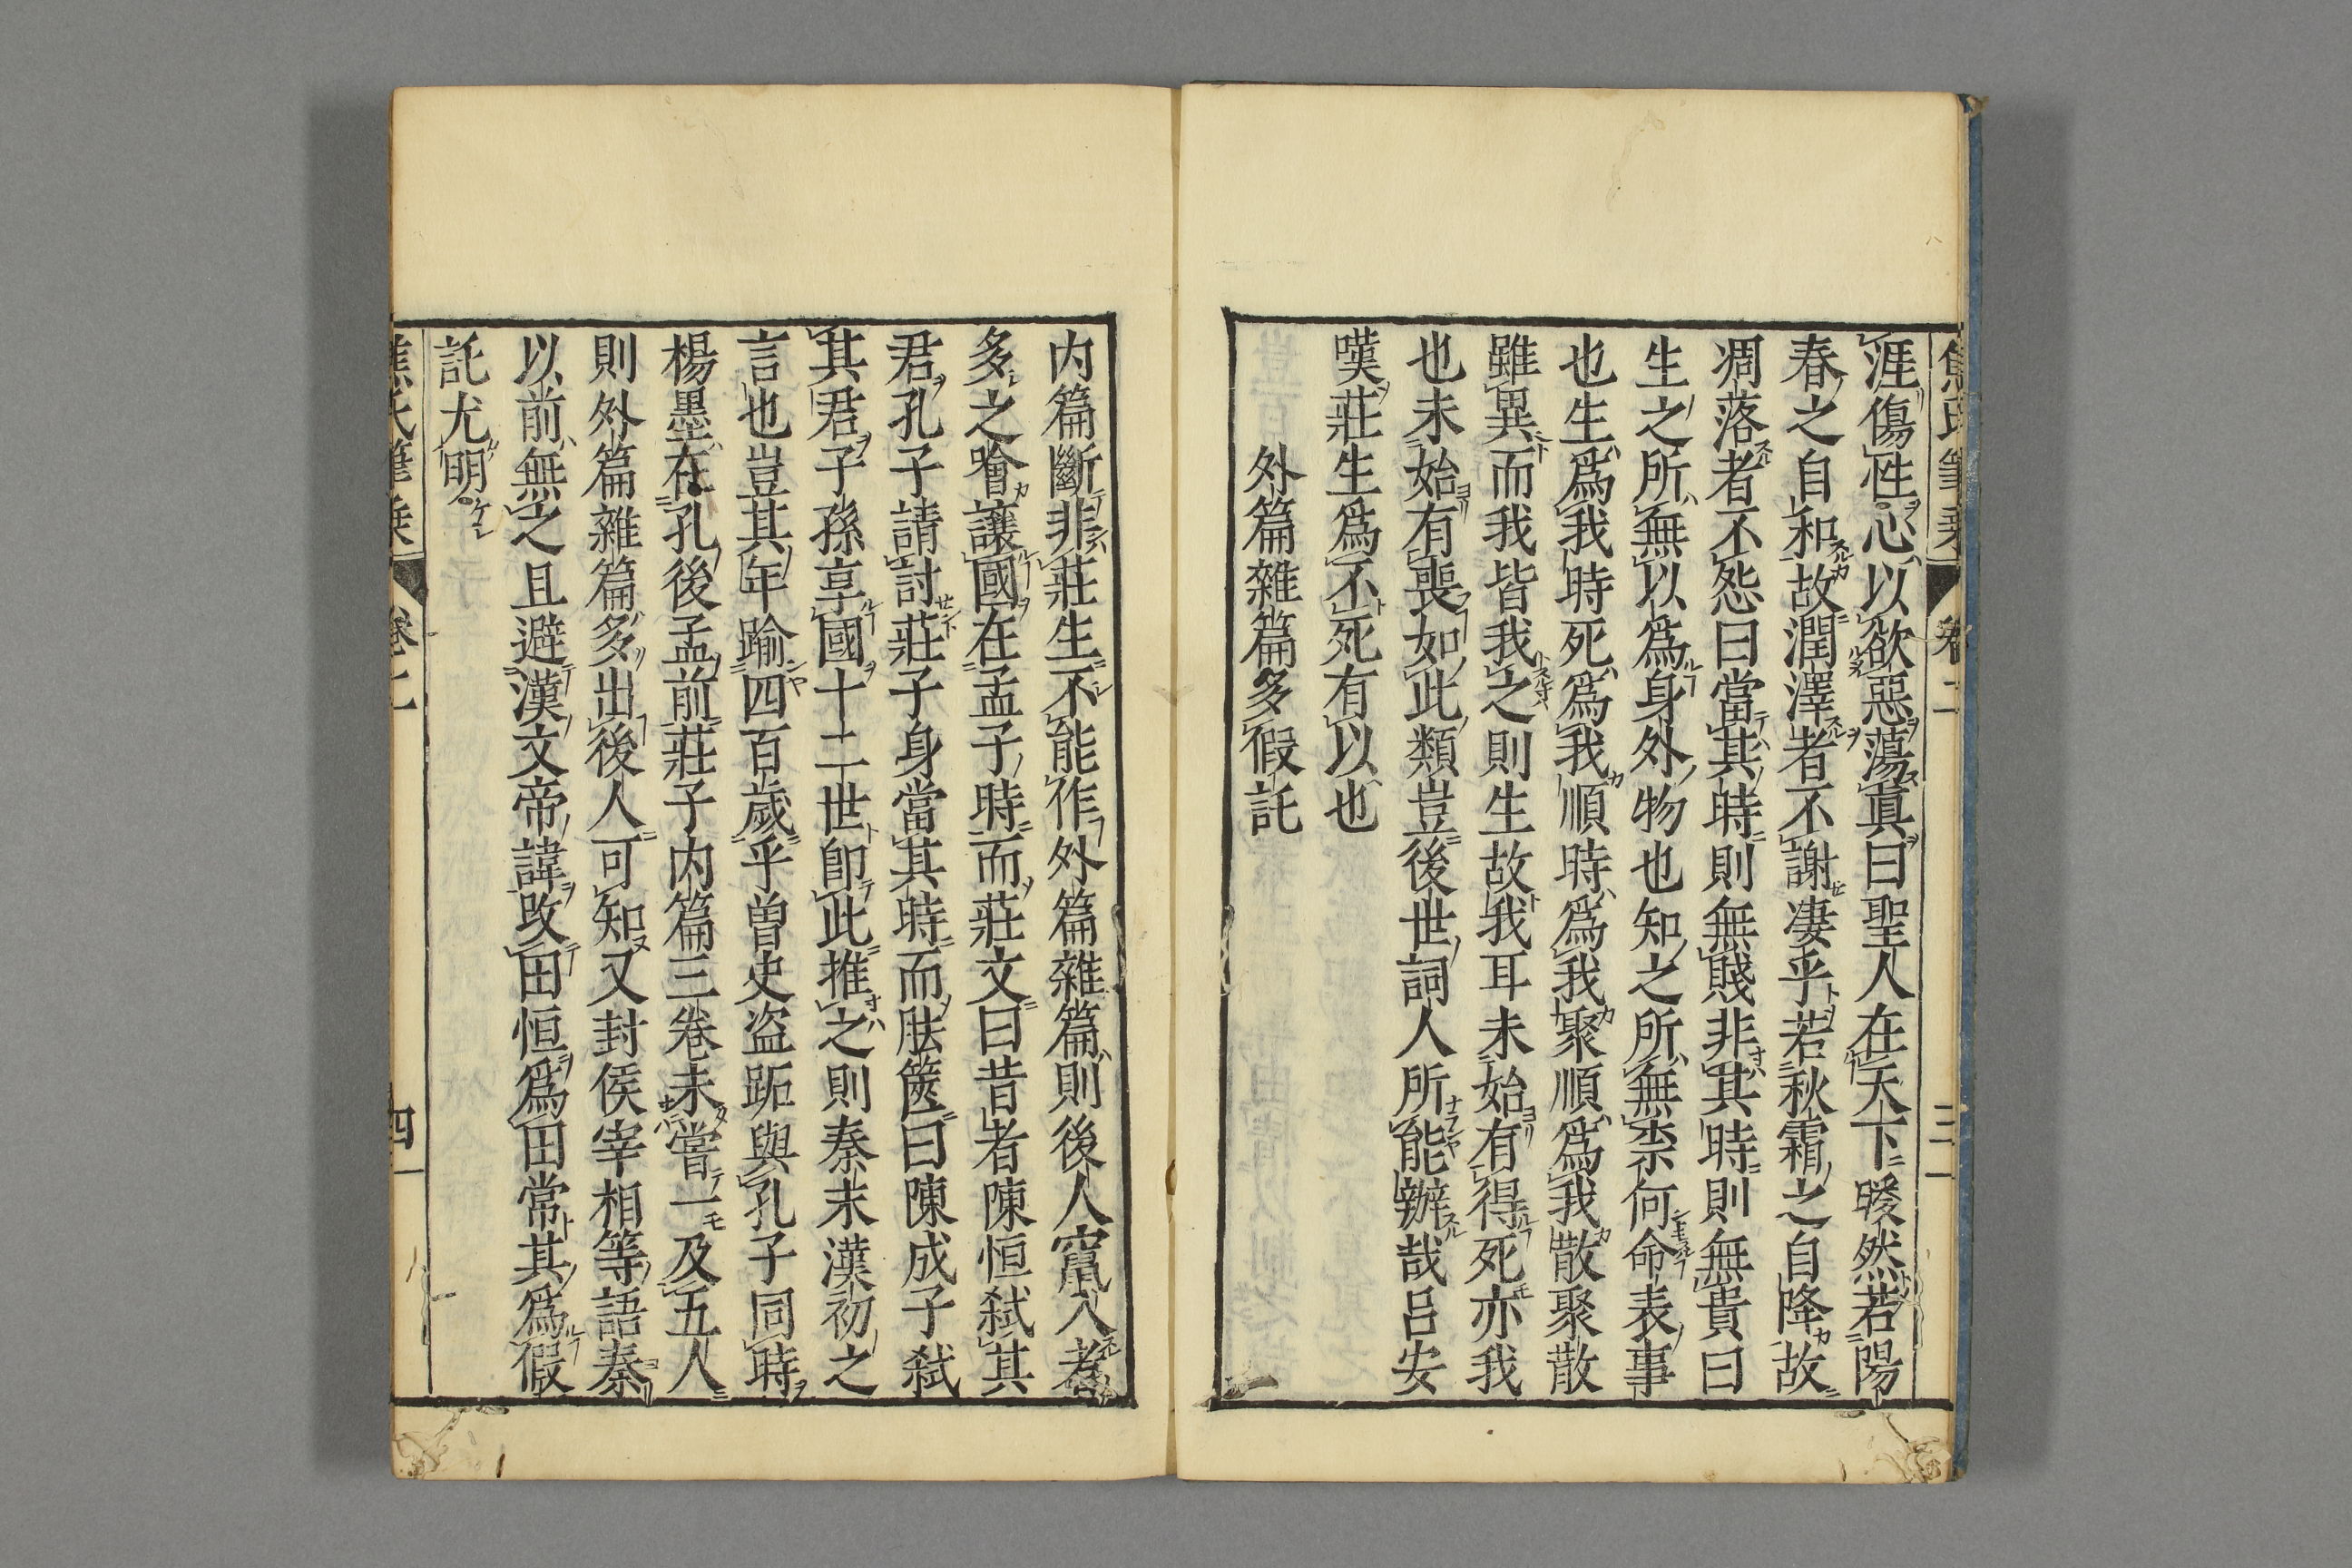 焦氏筆乗 卷二 三
涯傷性心以欲惡蕩眞曰聖人在天下暖然若陽
春之自和故潤澤者不謝凄乎若秋霜之自降故
凋落者不怨曰當其時則無賤非其時則無貴曰
生之所無以爲身外物也知之所無柰何命表事
也生爲我時死爲我順時爲我聚順爲我散聚散
雖異而我皆我之則生故我耳未始有得死亦我
也未始有喪如此類豈後世詞人所能辦哉呂安
嘆莊生爲不死有以也
外篇雜篇多假託
内篇斷非莊生不能作外篇雜篇則後人竄入者
多之噲讓國在孟子時而莊文曰昔者陳恒弑其
君孔子請討莊子身當其時而胠篋曰陳成子弑
其君子孫享國十二世卽此推之則秦末漢初之
言也豈其年踰四百歲乎曽史盗跖與孔子同時
楊墨在孔後孟前莊子内篇三卷未嘗一及五人
則外篇雜篇多出後人可知又封侯宰相等語秦
以前無之且避漢文帝諱改田恒爲田常其爲假
託尤明
焦氏筆乗 卷二 四